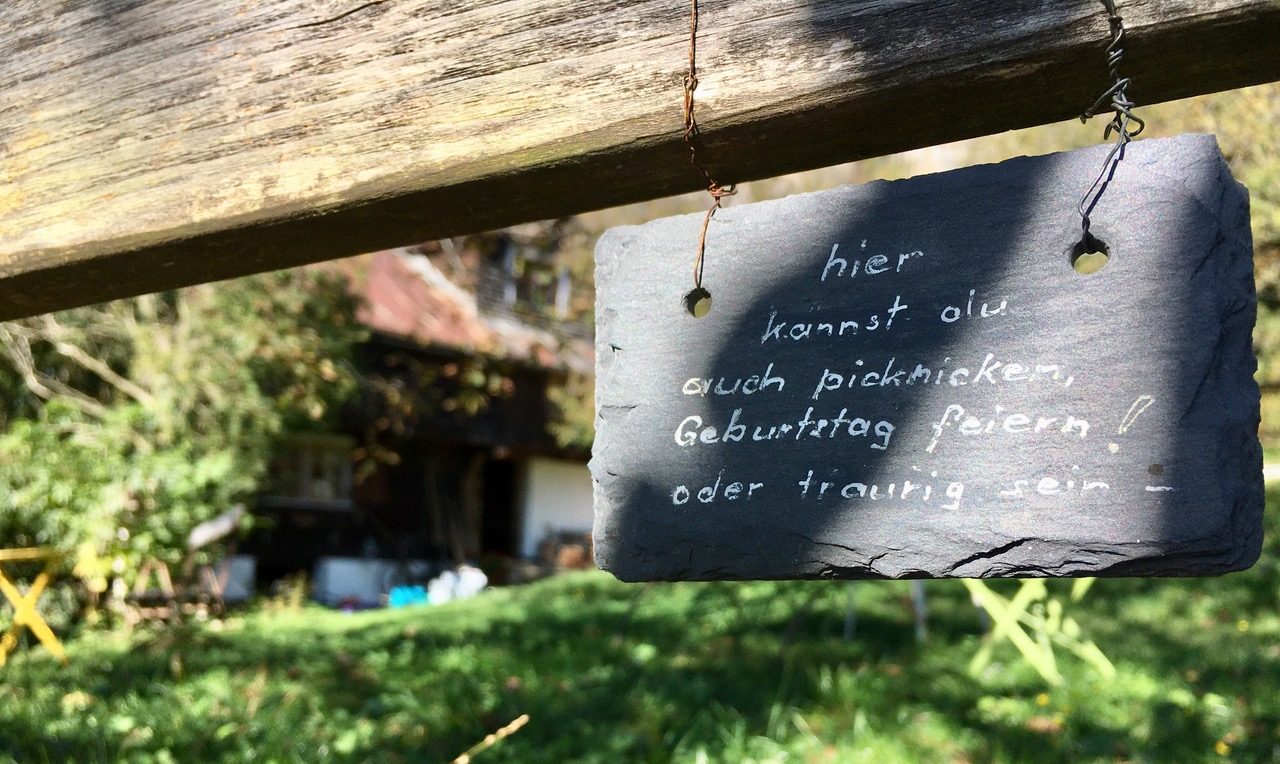 hier
kannst du
auch picknicken,
Geburtstag feiern!
oder traurig sein –